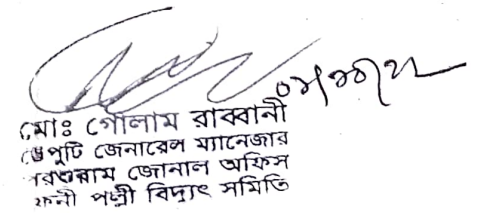 মোঃ গোলাম রাব্বানী
ডেপুটি জেনারেল ম্যানেজার
পরশুরাম জোনাল অফিস
ফেনী পল্লী বিদ্যুৎ সমিতি